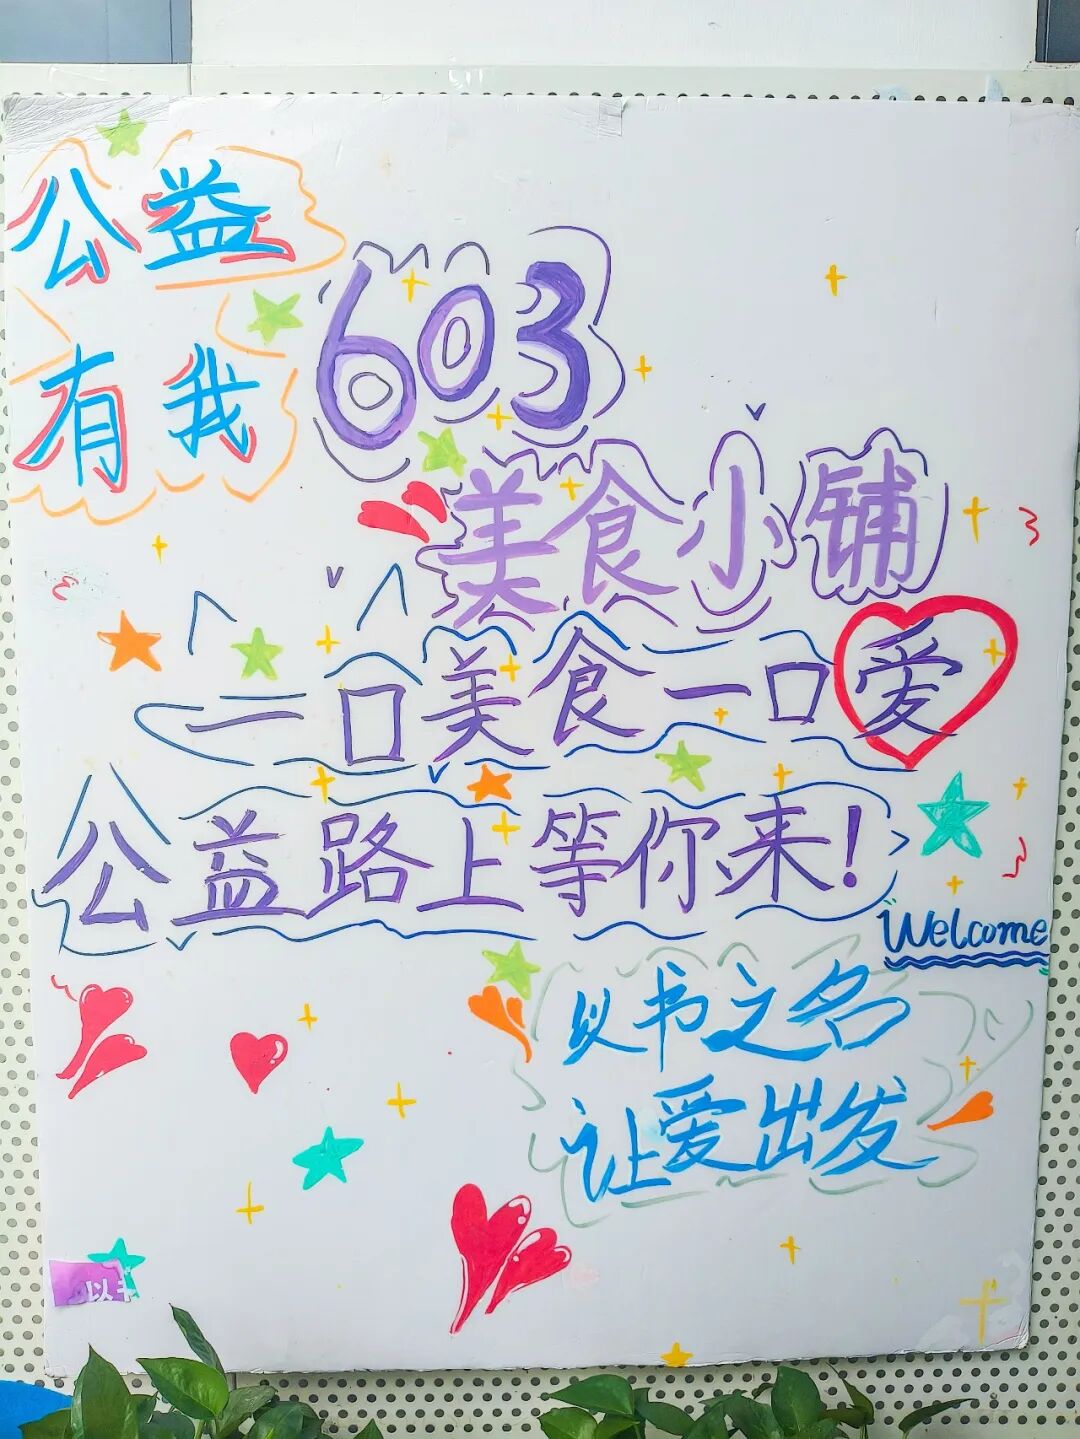 公益
有我
603
美食小铺
一口美食一口爱
公益路上等你来!
Welcome
以书之名
让爱出发
以书